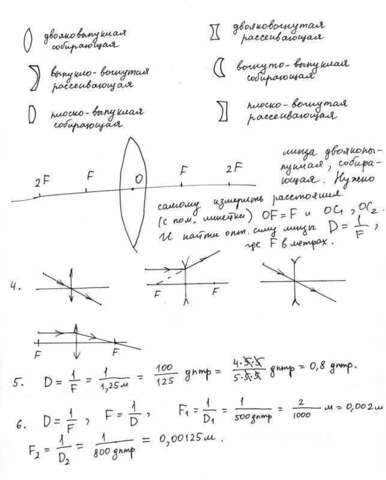 двояковыпуклая
собирающая
двояковогнутая
рассеивающая
выпукло-вогнутая
рассеивающая
вогнуто-выпуклая
собирающая
плоско-выпуклая
собирающая
плоско-вогнутая
рассеивающая
линза двояковы-
пуклая, собира-
ющая. Нужно
2F F O F 2F
самому измерить расстояния
(с пом. линейки) OF=F и OC₁, OC₂.
И найти опт. силу линзы D = 1/F,
где F в метрах.
4.
F F
F F
5. D = 1/F = 1/1,25м = 100/125 дптр = 4·5·5/5·5·5 дптр = 0,8 дптр.
6. D = 1/F, F = 1/D, F₁ = 1/D₁ = 1/500дптр = 2/1000 м = 0,002м
F₂ = 1/D₂ = 1/800дптр = 0,00125м.